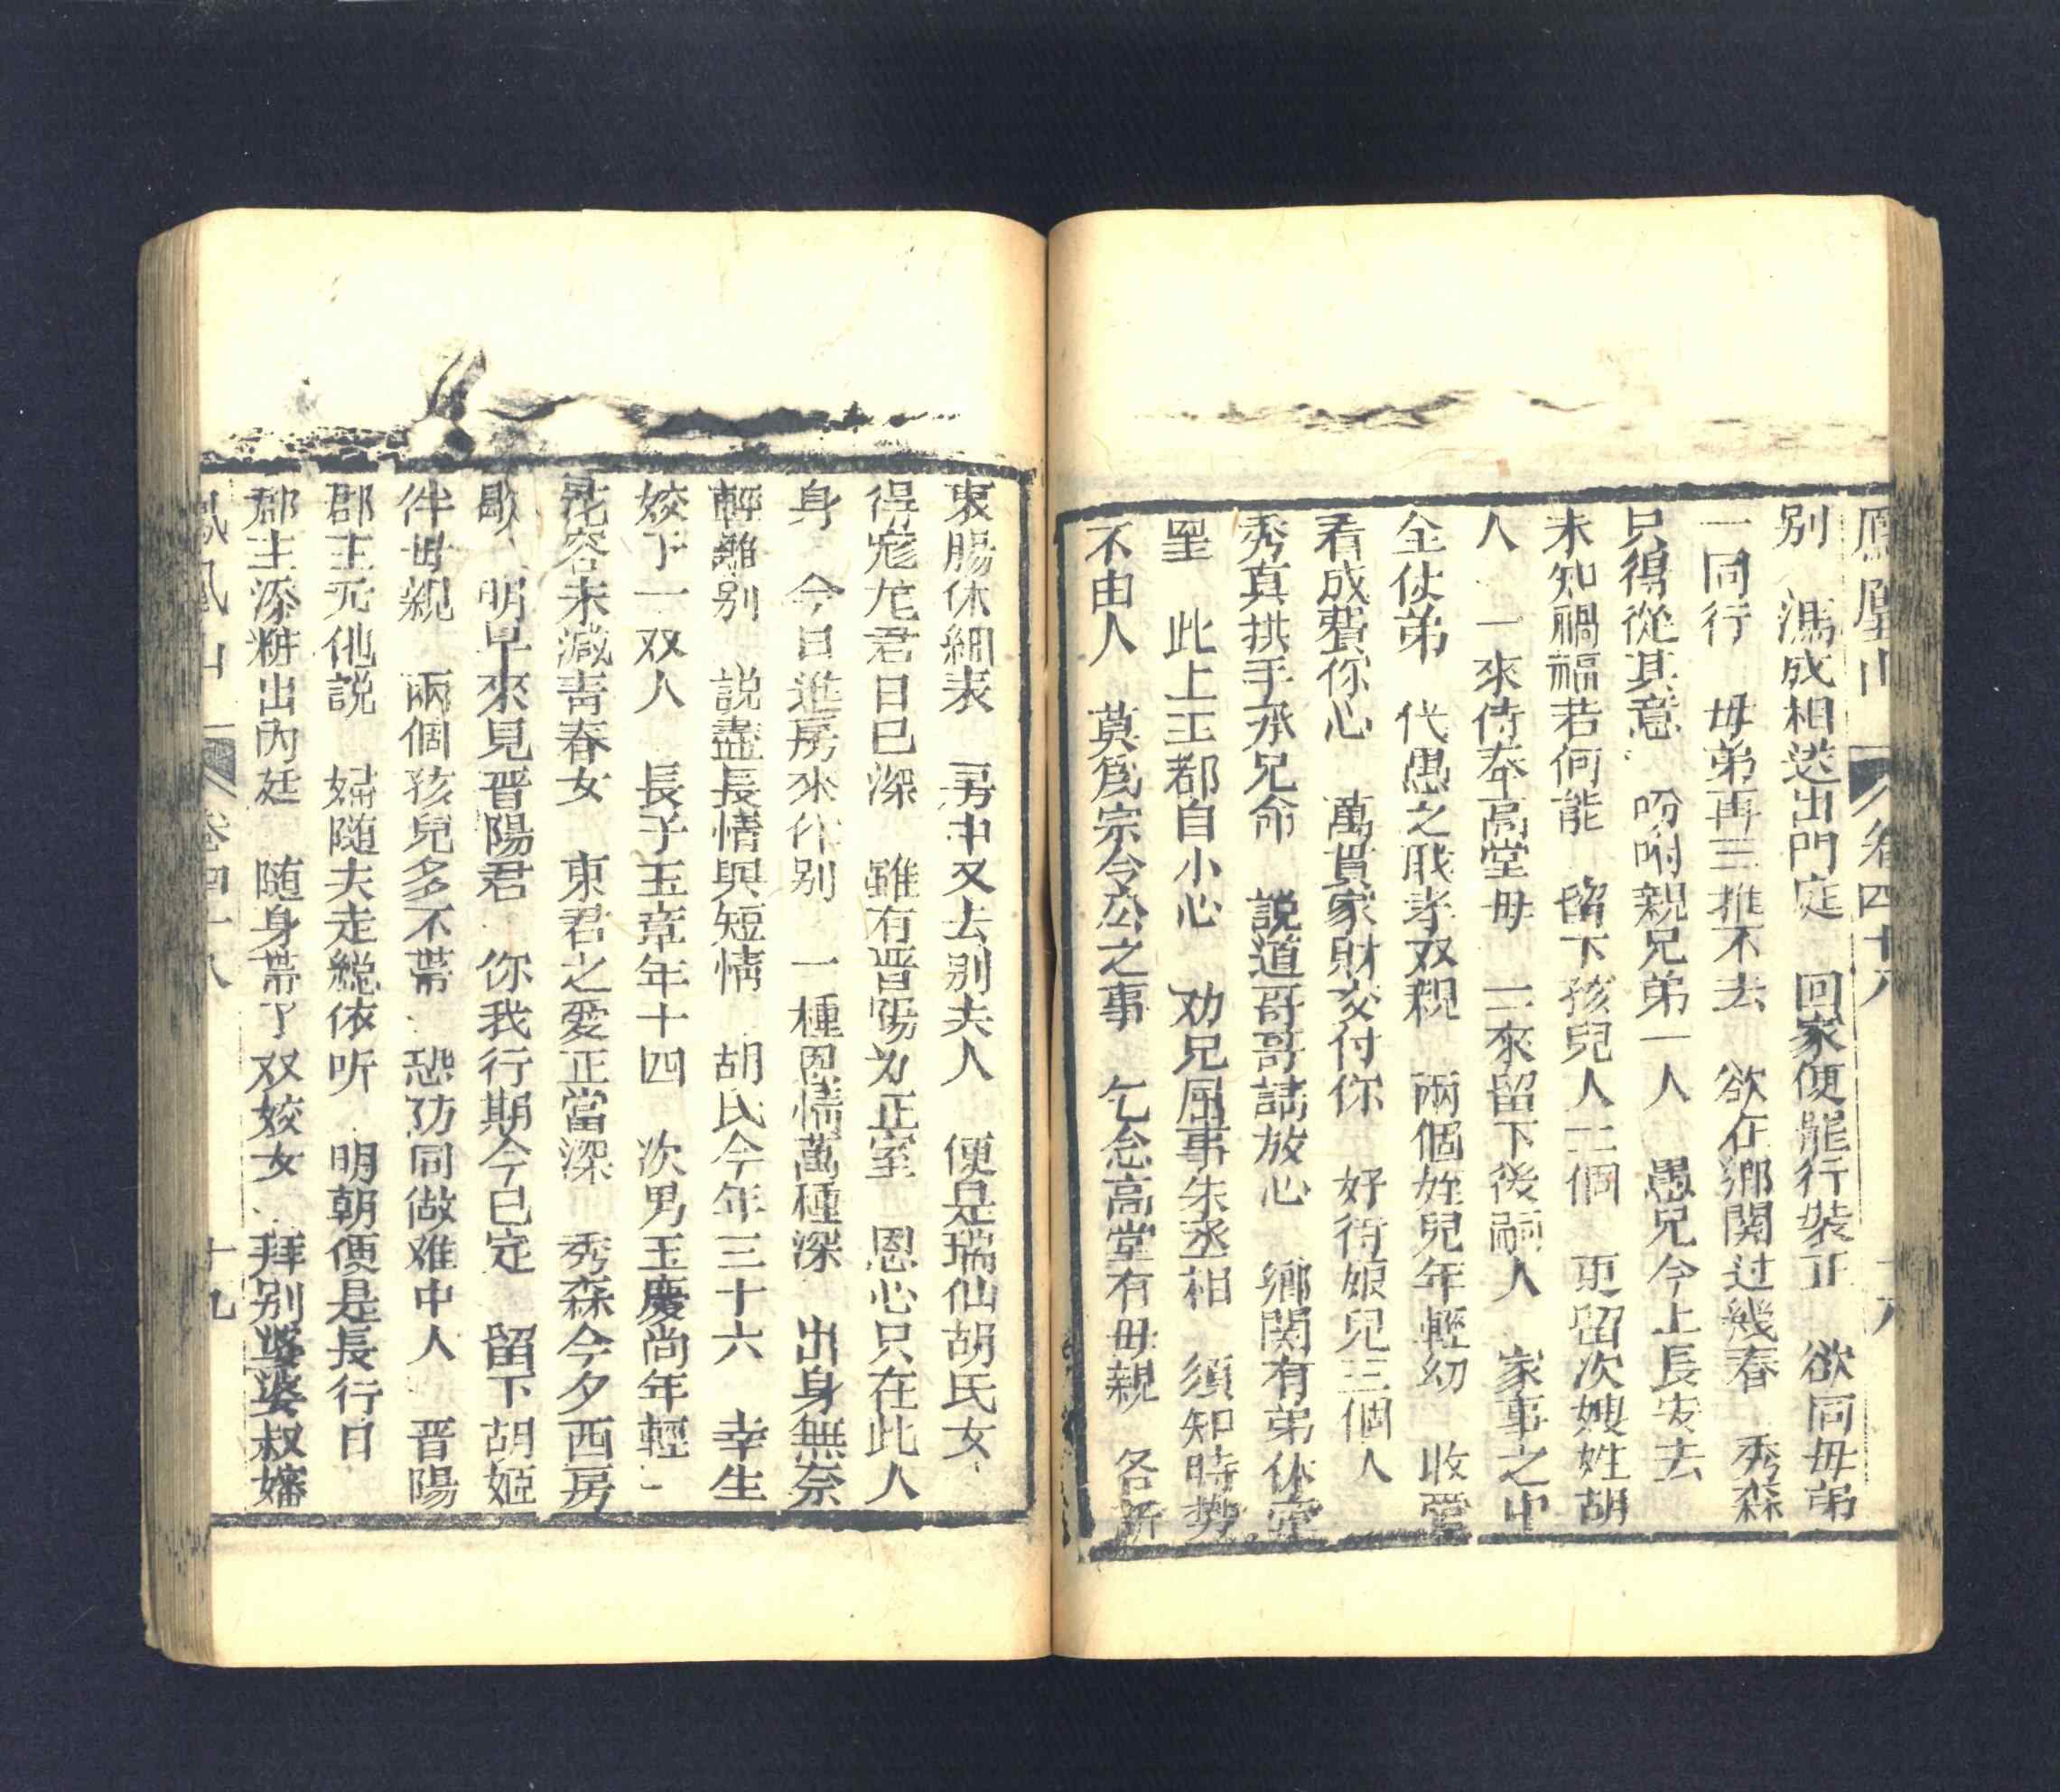 鳳凰山 卷四十八 十八
別 馮成相送出門庭 回家便龍行裝正 欲同母弟
一同行 母弟再三推不去 欲在鄉関过幾春 秀森
只得從其意 吩咐親兄弟一人 愚兄今上長安去
未知禍福若何能 留下孩兒人二個 更留次嫂姓胡
人 一來侍奉高堂母 二來留下後嗣人 家事之中
全仗弟 代愚之戝孝双親 兩個姪兒年輕幼 收愛
看成費你心 萬貫家財交付你 好待娘兒三個人
秀真拱手承兄命 説道哥哥請放心 鄉関有弟休
 此上王都自小心 劝兄屈事朱丞相 須知時势
不由人 莫爲宗令公之事 乞念高堂有母親 各訴
衷腸休細表 房中又去別夫人 便是瑞仙胡氏女
得寵尨君日已深 雖有晋陽为正室 恩心只在此人
身 今日進房來作別 一種恩情萬種深 出身無奈
輕離別 説盡長情與短情 胡氏今年三十六 幸生
姣下一双人 長子玉章年十四 次男玉慶尚年輕
花容未減青春女 東君之愛正當深 秀森今夕西房
歇 明早來見晋陽君 你我行期今已定 留下胡姬
伴母親 兩個孩兒多不帯 恐防同做难中人 晋陽
郡主元他説 婦随夫走縂依听 明朝便是長行日
郡主添粧出內廷 随身帯了双姣女 拜別婆婆叔嬸
鳳凰山 卷四十八 十九